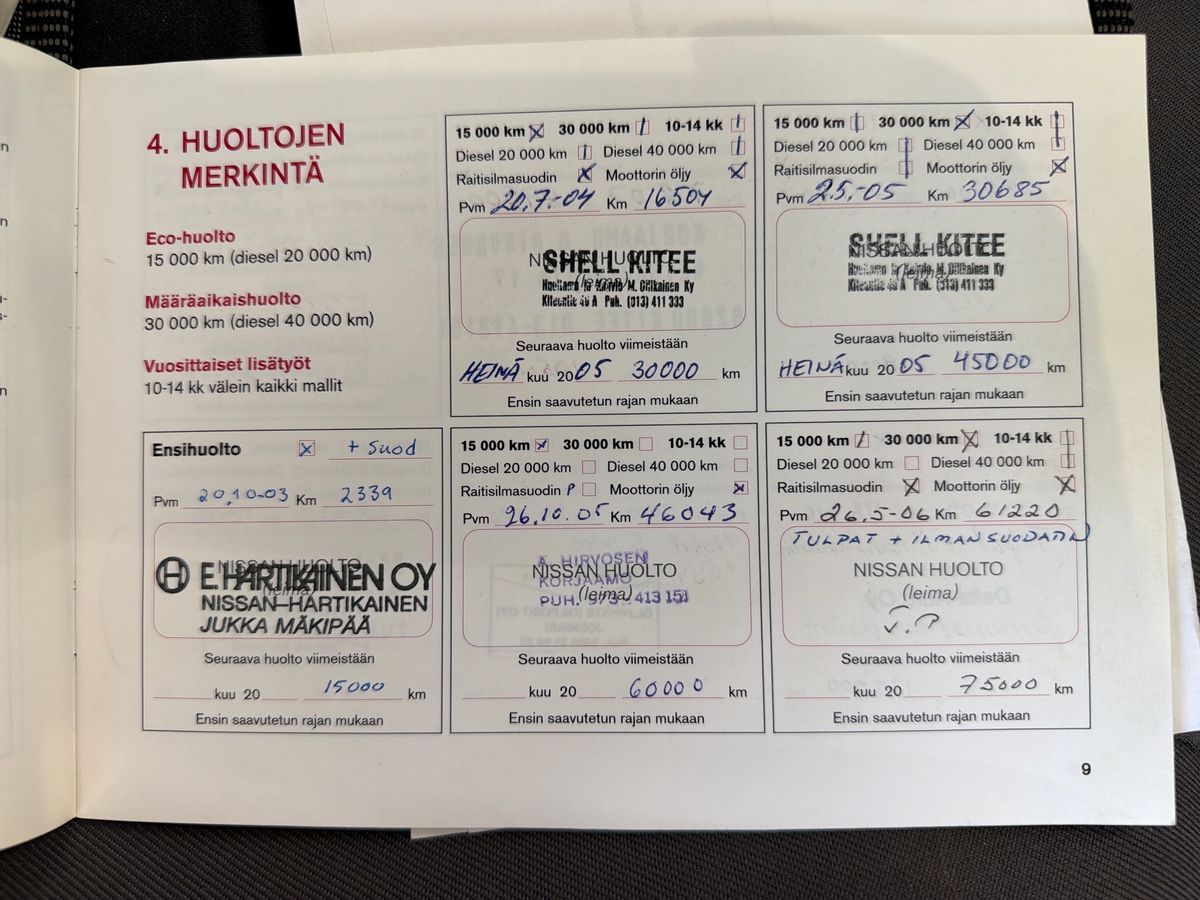 4. HUOLTOJEN
MERKINTÄ
Eco-huolto
15 000 km (diesel 20 000 km)
Määräaikaishuolto
30 000 km (diesel 40 000 km)
Vuosittaiset lisätyöt
10-14 kk välein kaikki mallit
15 000 km 30 000 km 10-14 kk
Diesel 20 000 km Diesel 40 000 km
Raitisilmasuodin Moottorin öljy
Pvm 20.7.-04 Km 16504
NISSAN HUOLTO
(leima)
SHELL KITEE
Huoltamo ja M. Oilikainen Ky
Kiteentie 46 A Puh. (913) 411 333
Seuraava huolto viimeistään
HEINÄ kuu 2005 30000 km
Ensin saavutetun rajan mukaan
15 000 km 30 000 km 10-14 kk
Diesel 20 000 km Diesel 40 000 km
Raitisilmasuodin Moottorin öljy
Pvm 2.5.-05 Km 30685
NISSAN HUOLTO
(leima)
SHELL KITEE
Huoltamo ja M. Oilikainen Ky
Kiteentie 46 A Puh. (913) 411 333
Seuraava huolto viimeistään
HEINÄ kuu 20 05 45000 km
Ensin saavutetun rajan mukaan
Ensihuolto x + suod
Pvm 20.10-03 Km 2339
NISSAN HUOLTO
(leima)
E.HARTIKAINEN OY
NISSAN-HARTIKAINEN
JUKKA MÄKIPÄÄ
Seuraava huolto viimeistään
kuu 20 15000 km
Ensin saavutetun rajan mukaan
15 000 km 30 000 km 10-14 kk
Diesel 20 000 km Diesel 40 000 km
Raitisilmasuodin P Moottorin öljy
Pvm 26.10.05 Km 46043
NISSAN HUOLTO
(leima)
HIRVOSEN
KORJAAMO
PUH. 413 151
Seuraava huolto viimeistään
kuu 20 60000 km
Ensin saavutetun rajan mukaan
15 000 km 30 000 km 10-14 kk
Diesel 20 000 km Diesel 40 000 km
Raitisilmasuodin Moottorin öljy
Pvm 26.5-06 Km 61220
TULPAT + ILMANSUODATIN
NISSAN HUOLTO
(leima)
Seuraava huolto viimeistään
kuu 20 75000 km
Ensin saavutetun rajan mukaan
9